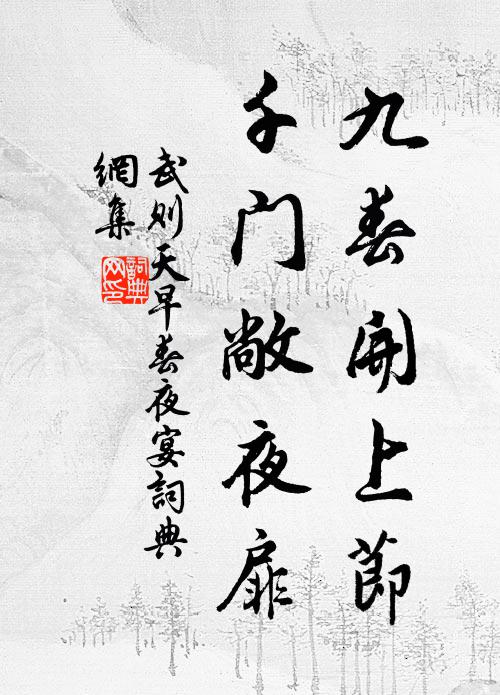 九春開上節
千门敞夜扉
武则天早春夜宴詞典
網集
詞典
网印